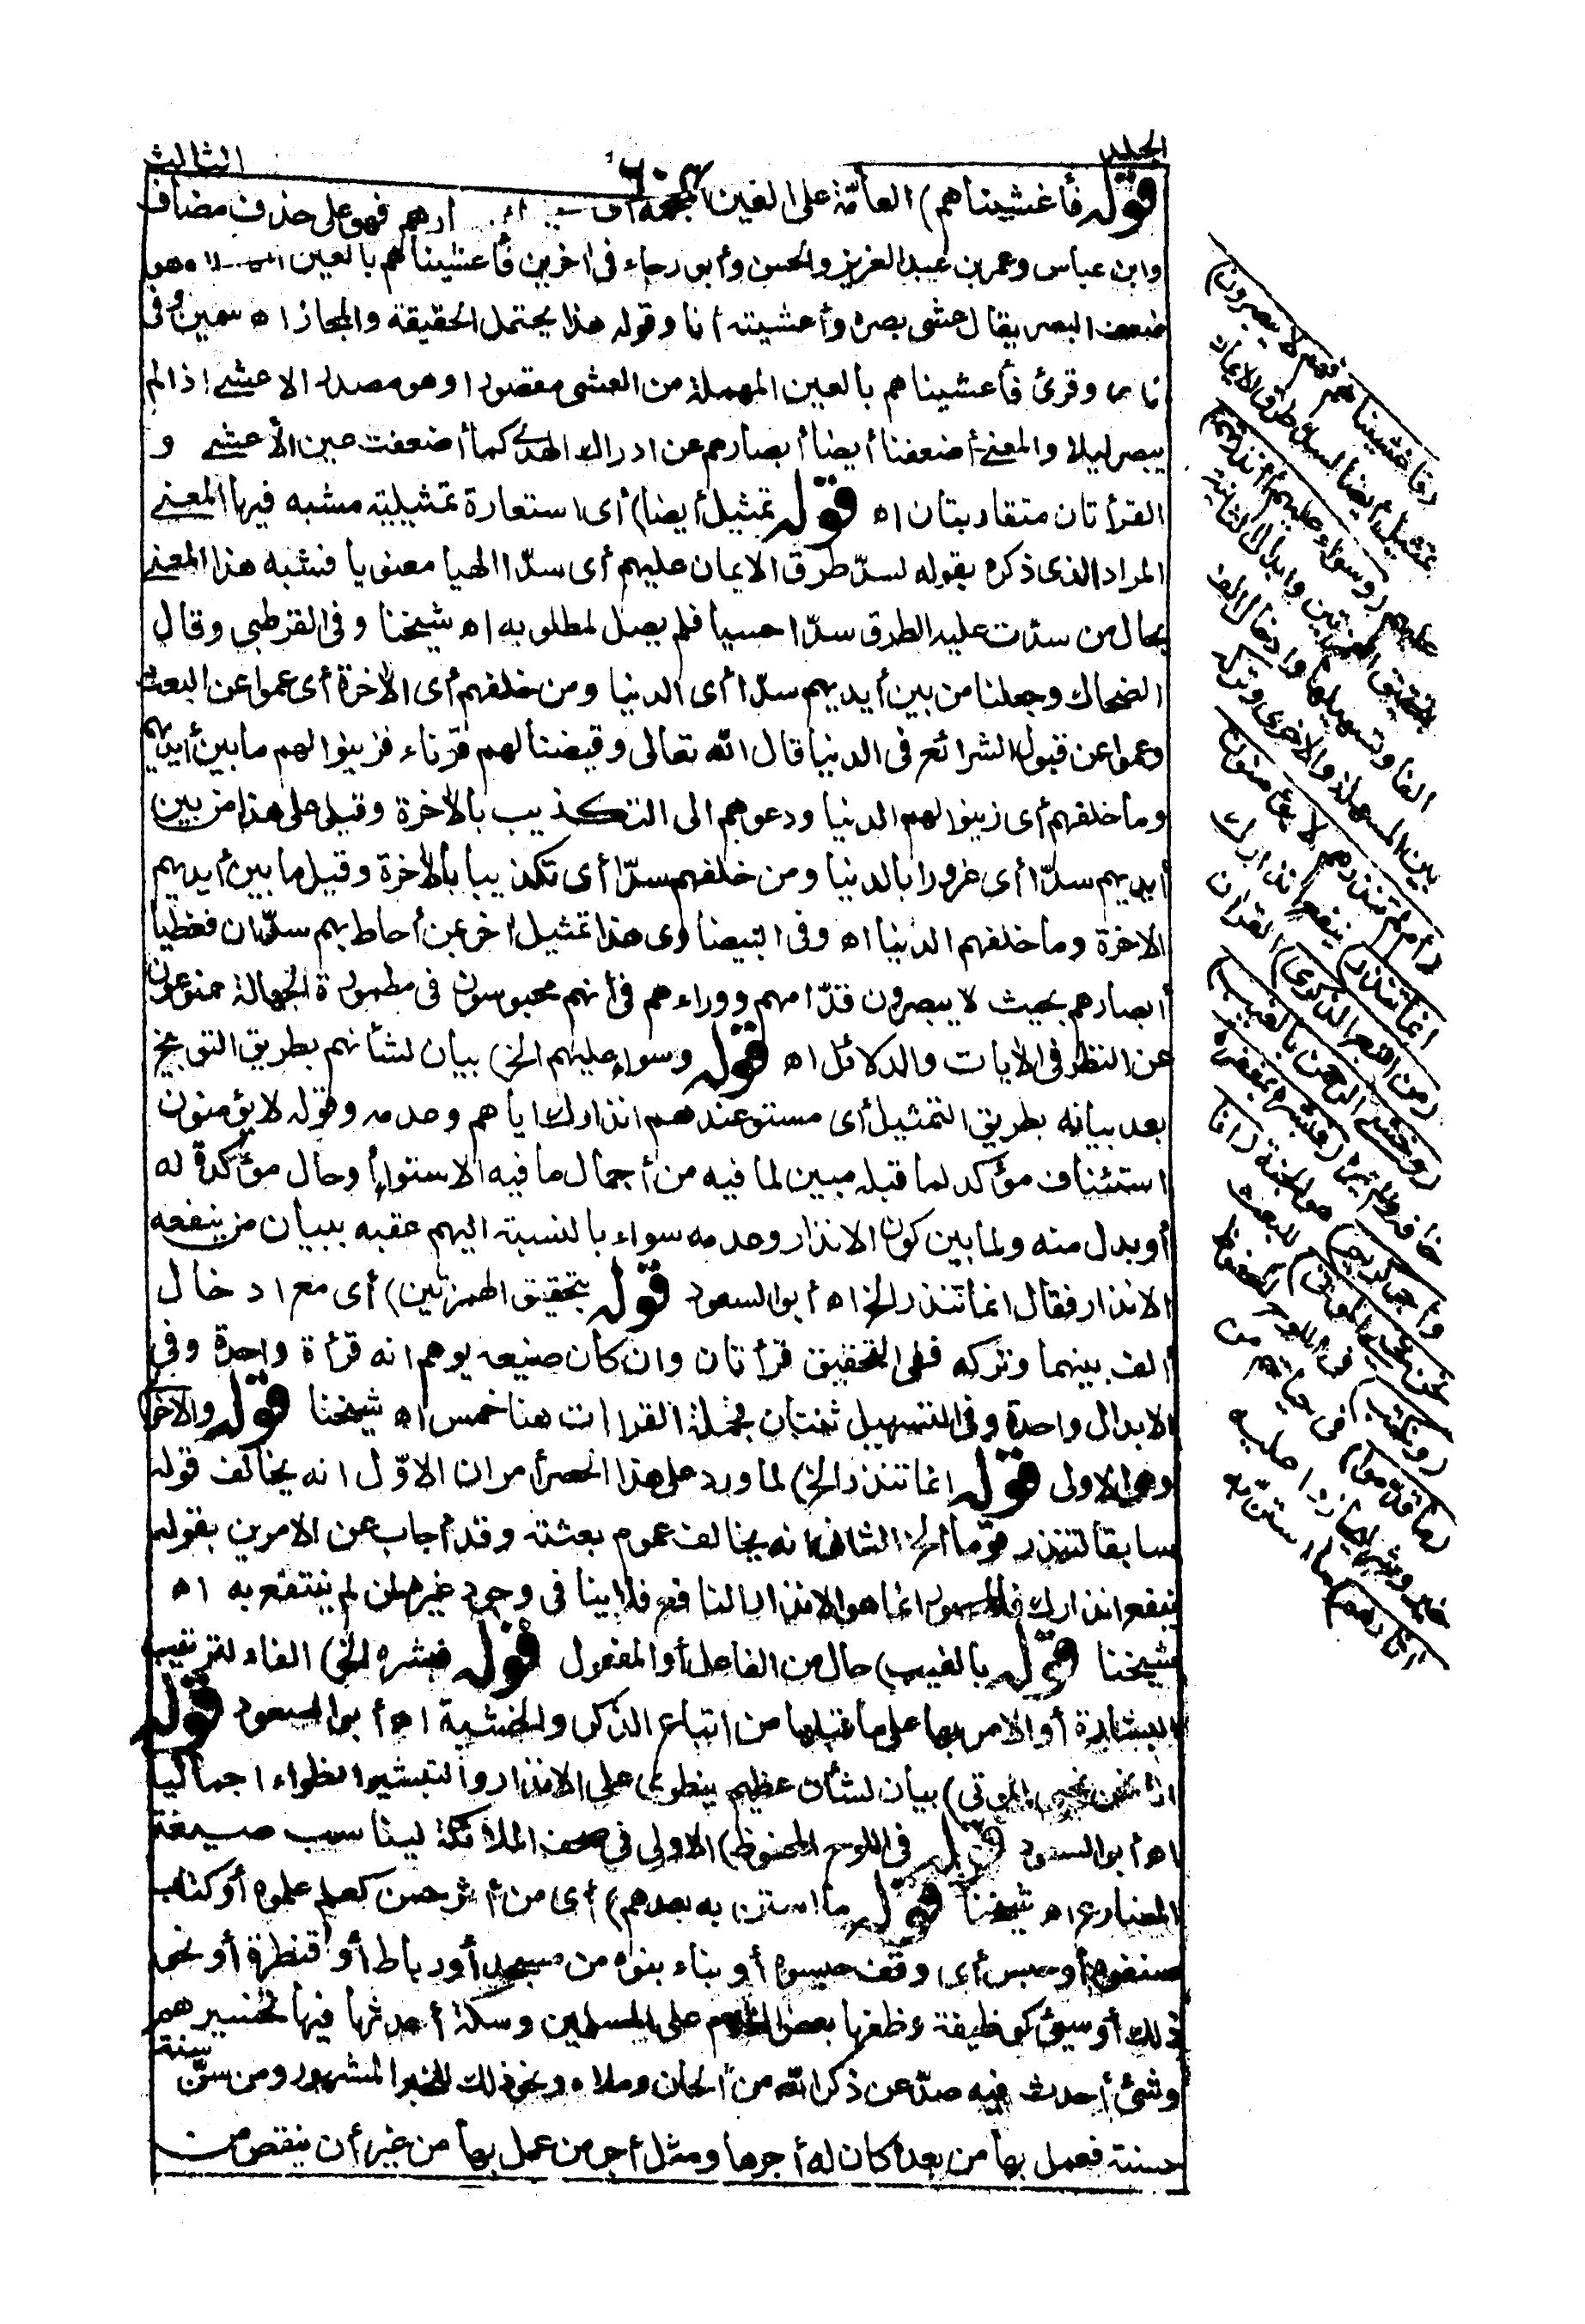 الجلد
الثالث
قوله فأغشيناهم) العامّة على الغين المعجمة أى أبصارهم فهو على حذف مضاف
وابن عباس وعمر بن عبد العزيز والحسن وأبو رجاء فى اخرين فأعشيناهم بالعين وهو
ضعف البصر يقال عشى بصره وأعشيته أنا وقوله هذا يحتمل الحقيقة والمجاز اه سمين وفى
وقرئ فأعشيناهم بالعين المهملة من العشى مقصورا وهو مصدر الاعشى اذا لم
يبصر ليلا والمعنى أضعفنا أيضا أبصارهم عن ادراك الهدى كما أضعفت عين الأعشى و
القرأتان متقاربتان اه قوله تمثيل أيضا) أى استعارة تمثيلية مشبه فيها المعنى
المراد الذى ذكره بقوله لسدّ طرق الايمان عليهم أى سدّا الهيا معنويا فشبه هذا المعنى
بحال من سدّت عليه الطرق سدّا حسيا فلم يصل لمطلوبه اه شيخنا وفى القرطبى وقال
الضحاك وجعلنا من بين أيديهم سدّا أى الدنيا ومن خلفهم أى الأخرة أى عموا عن البعث
وعموا عن قبول الشرائع فى الدنيا قال الله تعالى وقيضنا لهم قرناء فزينوا لهم ما بين أيديهم
وما خلفهم أى زينوا لهم الدنيا ودعوهم الى التكذيب بالأخرة وقيل على هذا من بين
أيديهم سدّا أى غرورا بالدنيا ومن خلفهم سدّا أى تكذيبا بالأخرة وقيل ما بين أيديهم
الاخرة وما خلفهم الدنيا اه وفى البيضاوى هذا تمثيل اخر عن أحاط بهم سدّان فغطيا
أبصارهم بحيث لا يبصرون قدّامهم ووراءهم فى أنهم محبوسون فى مطمورة الجهالة ممنوعون
عن النظر فى الأيات والدلائل اه قوله وسواء عليهم الخ) بيان لشأنهم بطريق التوبيخ
بعد بيانه بطريق التمثيل أى مستو عندهم انذارك اياهم وعدمه وقوله لا يؤمنون
استئناف مؤكد لما قبله مبين لما فيه من أجمال ما فيه الاستواء أو حال مؤكدة له
أو بدل منه ولما بين كون الانذار وعدمه سواء بالنسبة اليهم عقبه ببيان من ينفعه
الانذار فقال انما تنذر الخ اه أبو السعود قوله بتحقيق الهمزتين) أى مع ادخال
ألف بينهما وتركه ففى التحقيق قرأتان وان كان صنيعه يوهم انه قرأة واحدة وفى
الابدال واحدة وفى التسهيل ثنتان فجملة القراات هنا خمس اه شيخنا قوله والاخرى
وهى الاولى قوله انما تنذر الخ) لما ورد على هذا الحصر أمران الاوّل انه يخالف قوله
سابقا لتنذر قوما الخ الثانى انه يخالف عموم بعثته وقد أجاب عن الامرين بقوله
ينفع انذارك انما هو الانذار النافع فلا ينافى وجود غيره لمن لم ينتفع به اه
شيخنا قوله بالغيب) حال من الفاعل أو المفعول قوله فبشره الخ) الفاء لترتيب
البشارة أو الامر بها على ما قبلها من اتباع الذكر والخشية اه أبو السعود قوله
انا نحن نحيى الموتى) بيان لشأن عظيم ينطوى على الانذار والتبشير انطواء اجماليا
اه أبو السعود قوله فى اللوح المحفوظ) الاولى فى صحف الملائكة ليناسب صيغة
المضارع اه شيخنا قوله ما استن به بعدهم) أى من أثر حسن كعلم علموه أو كتاب
صنفوه أو حبس أى وقف حبسوه أو بناء بنوه من مسجد أو رباط أو قنطرة أو نحو
ذلك أو سيئ كوظيفة وظفها بعض على المسلمين وسكة أحدثها فيها تخسيرهم
وشئ أحدث فيه صدّ عن ذكر الله من الحان وملاه ونحو ذلك للخبر المشهور ومن سنّ سنة
حسنة فعمل بها من بعده كان له أجرها ومثل أجر من عمل بها من غير أن ينقص من
(فاغشيناهم فهم لا يبصرون)
تمثيل أيضا لسد طرق الايمان
عليهم (وسواء عليهم أأنذرتهم)
بتحقيق الهمزتين وابدال الثانية
الفا وتسهيلها وادخال الف
بين المسهلة والاخرى وتركه
(أم لم تنذرهم لا يؤمنون
انما تنذر) ينفع انذارك
(من اتبع الذكر) القران
(وخشى الرحمن بالغيب)
خافه ولم يره (فبشره بمغفرة
وأجر كريم) هو الجنة (انا
نحن نحيى الموتى) للبعث
(ونكتب) فى اللوح المحفوظ
(ما قدموا) فى حياتهم من
خير وشر ليجازوا عليه
(واثارهم) ما استن به